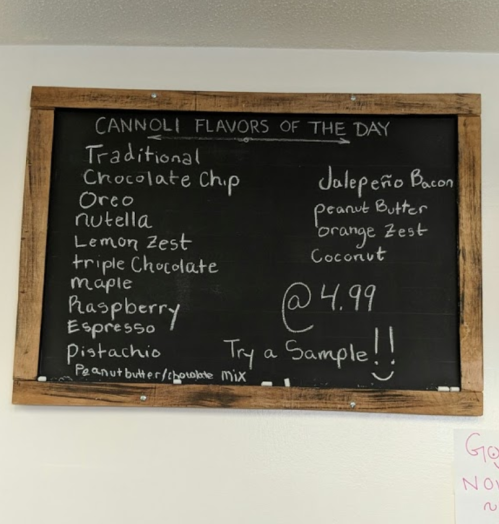 CANNOLI FLAVORS OF THE DAY
Traditional
Chocolate Chip
Oreo
nutella
Lemon Zest
triple Chocolate
maple
Raspberry
Espresso
Pistachio
Peanutbutter/chocolate mix
Jalepeño Bacon
peanut Butter
orange Zest
Coconut
@ 4.99
Try a Sample!!